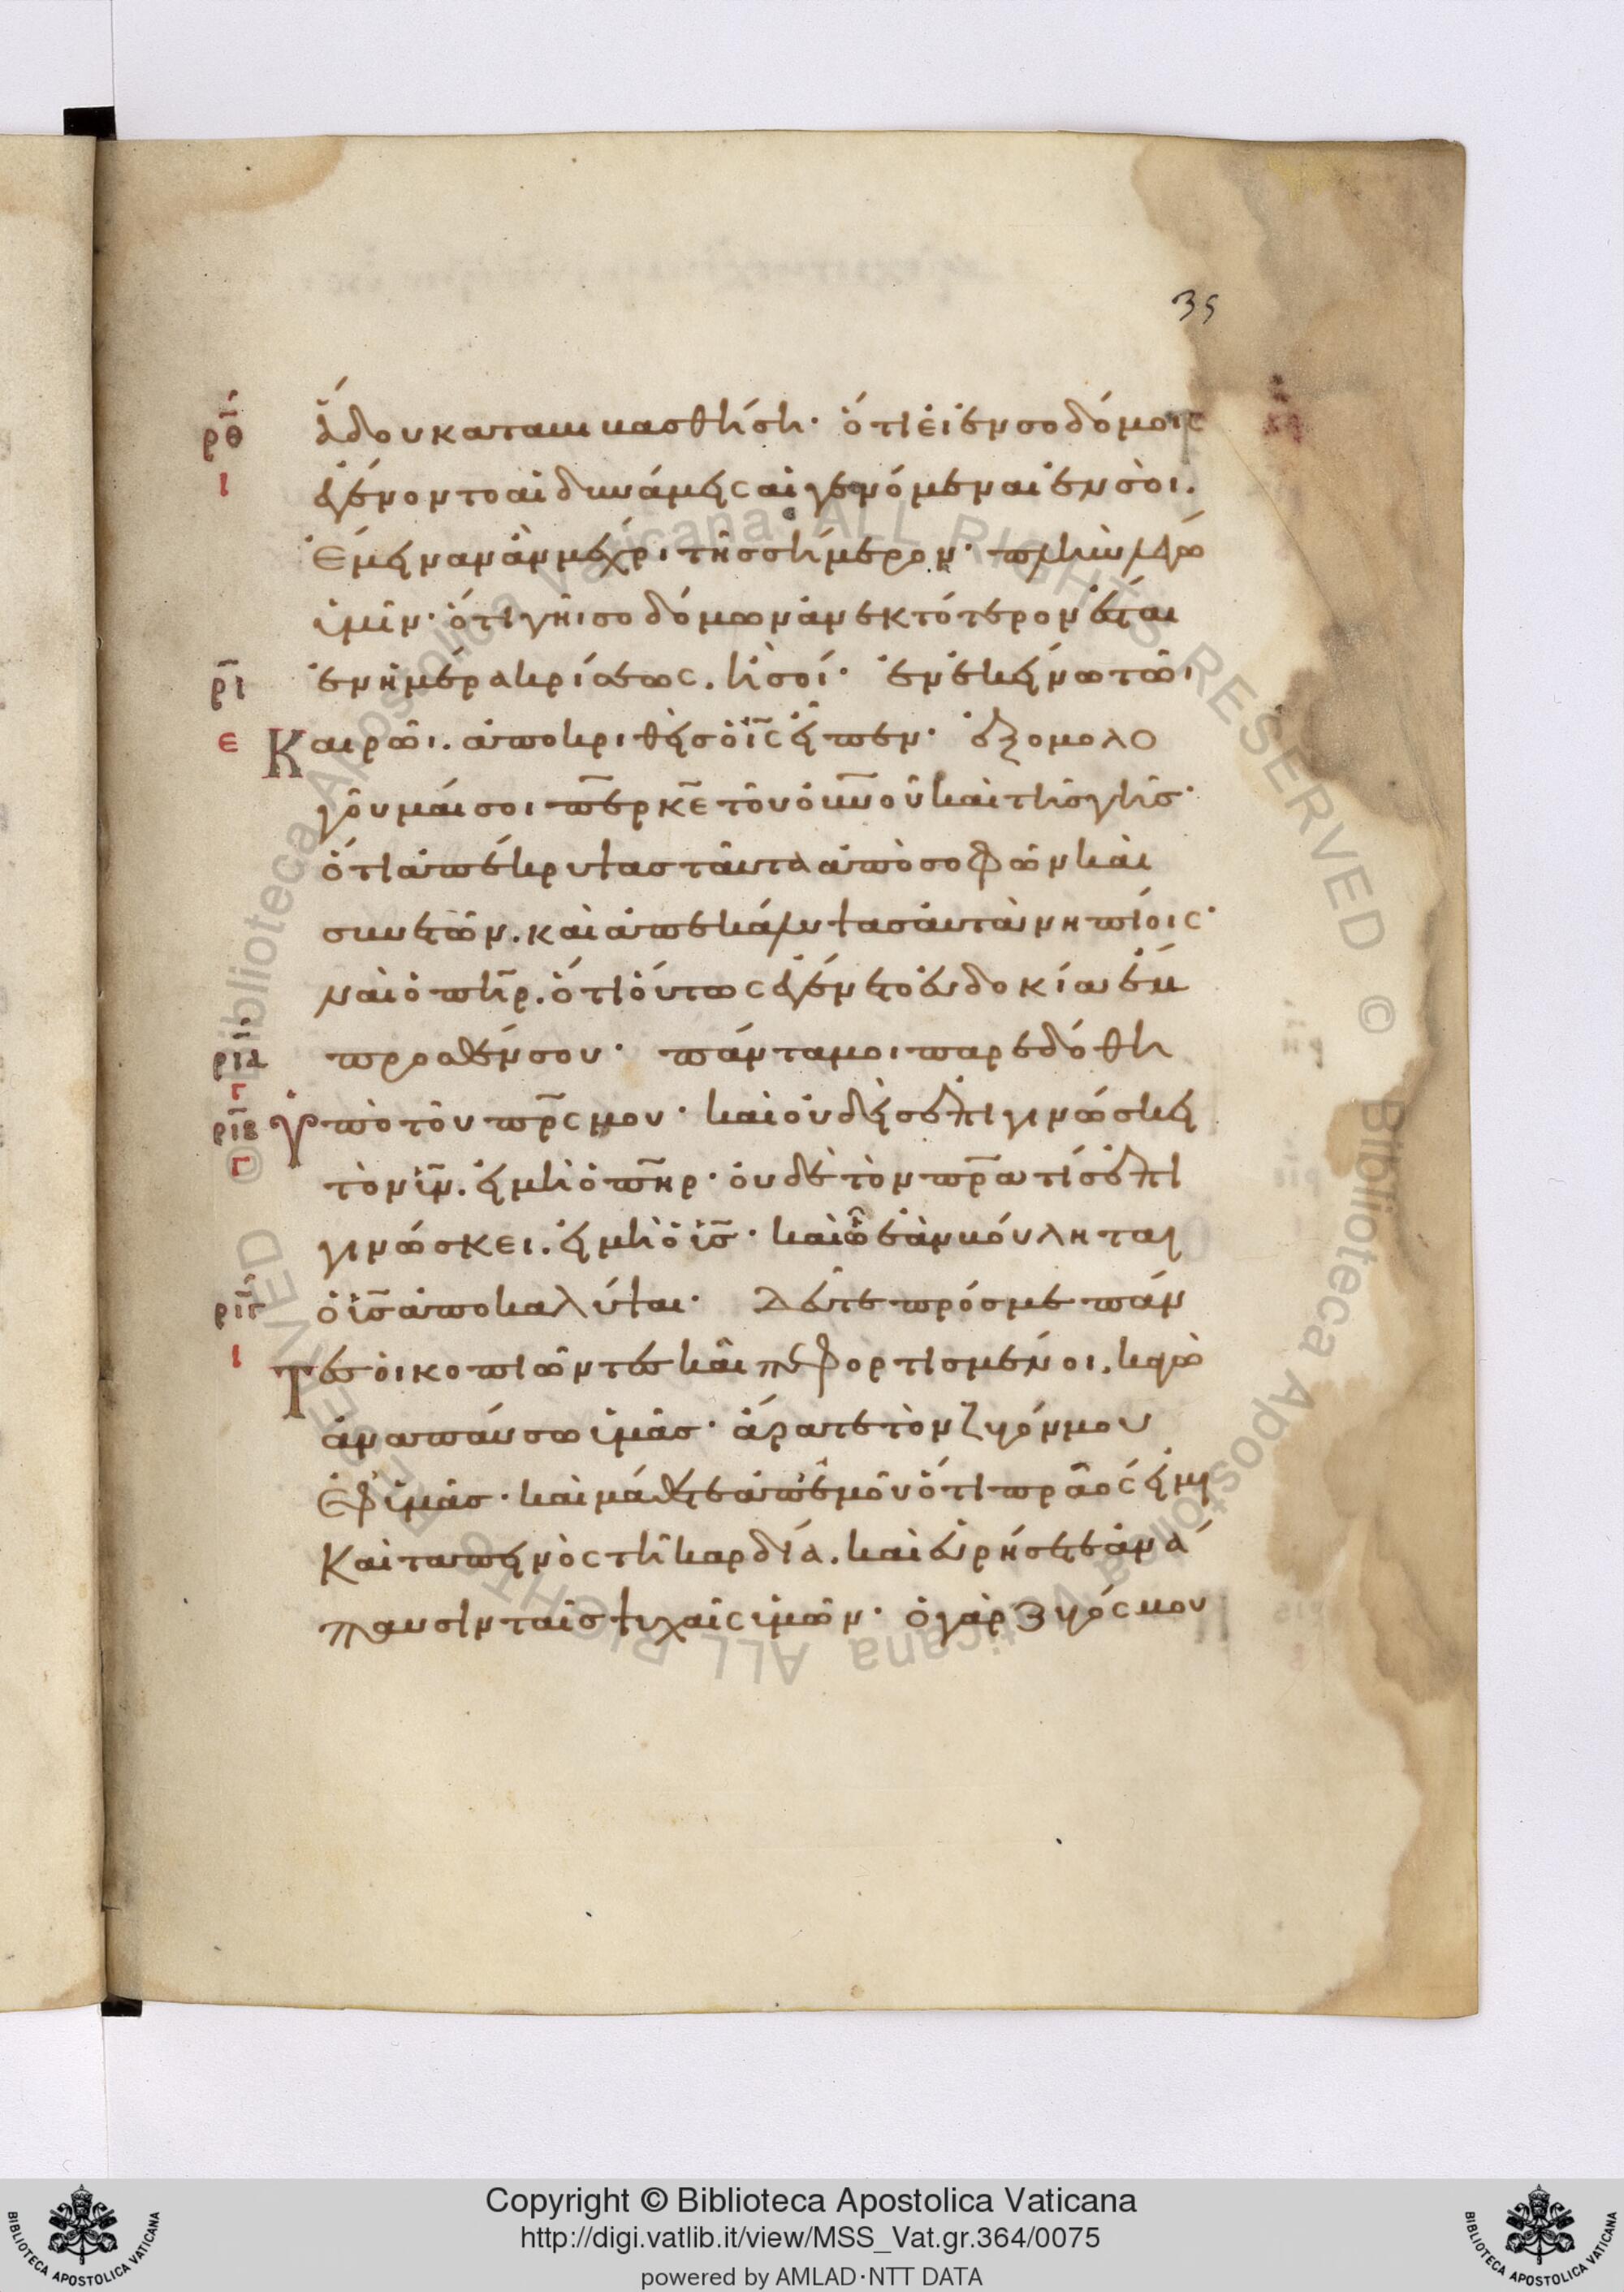 35
ρθ ἅδου καταβιβασθήση· ὅτι εἰ ἐν σοδόμοις
ι ἐγένοντο αἱ δυνάμεις αἱ γενόμεναι ἐν σοὶ.
ἔμειναν ἂν μέχρι τῆς σήμερον· πλὴν λέγω
ὑμῖν· ὅτι γῆι σοδόμων ἀνεκτότερον ἔσται
ρι ἐν ἡμέρα κρίσεως. ἢ σοί· ἐν ἐκείνω τῶι
ε Καιρῶι. ἀποκριθεὶς ὁ ις εἶπεν· ἐξομολο
γοῦμαί σοι περ κε τοῦ οὐνοῦ καὶ τῆς γῆς·
ὅτι ἀπέκρυψας ταῦτα ἀπὸ σοφῶν καὶ
συνετῶν. καὶ ἀπεκάλυψας αὐτὰ νηπίοις·
ναὶ ὁ πηρ. ὅτι οὕτως ἐγένετο εὐδοκία ἔμ
ρια προσθέν σου· πάντα μοι παρεδόθη
γ
ριβ Ὑπὸ τοῦ πρς μου· καὶ οὐδεὶς ἐπιγινώσκει
γ τὸν υν. εἰ μὴ ὁ πηρ· οὐδὲ τὸν πρα τίς ἐπι
γινώσκει. εἰ μὴ ὁ υς· καὶ ὧ ἐὰν βούληται
ριγ ὁ υς ἀποκαλύψαι· Δεῦτε πρός με πάν
ι Τες οἱ κοπιῶντες καὶ πεφορτισμένοι. κἀγὼ
ἀναπαύσω ὑμᾶς· ἄρατε τὸν ζυγόν μου
ἐφ ὑμᾶς· καὶ μάθετε ἀπ ἐμοῦ ὅτι πρᾶός εἰμι
Καὶ ταπεινὸς τῆ καρδία. καὶ εὑρήσετε ἀνά
παυσιν ταῖς ψυχαῖς ὑμῶν· ὁ γὰρ ζυγός μου
Copyright © Biblioteca Apostolica Vaticana
http://digi.vatlib.it/view/MSS_Vat.gr.364/0075
powered by AMLAD·NTT DATA
BIBLIOTECA APOSTOLICA VATICANA
BIBLIOTECA APOSTOLICA VATICANA
© Biblioteca Apostolica Vaticana ALL RIGHTS RESERVED © Biblioteca Apostolica Vaticana ALL RIGHTS RESERVED